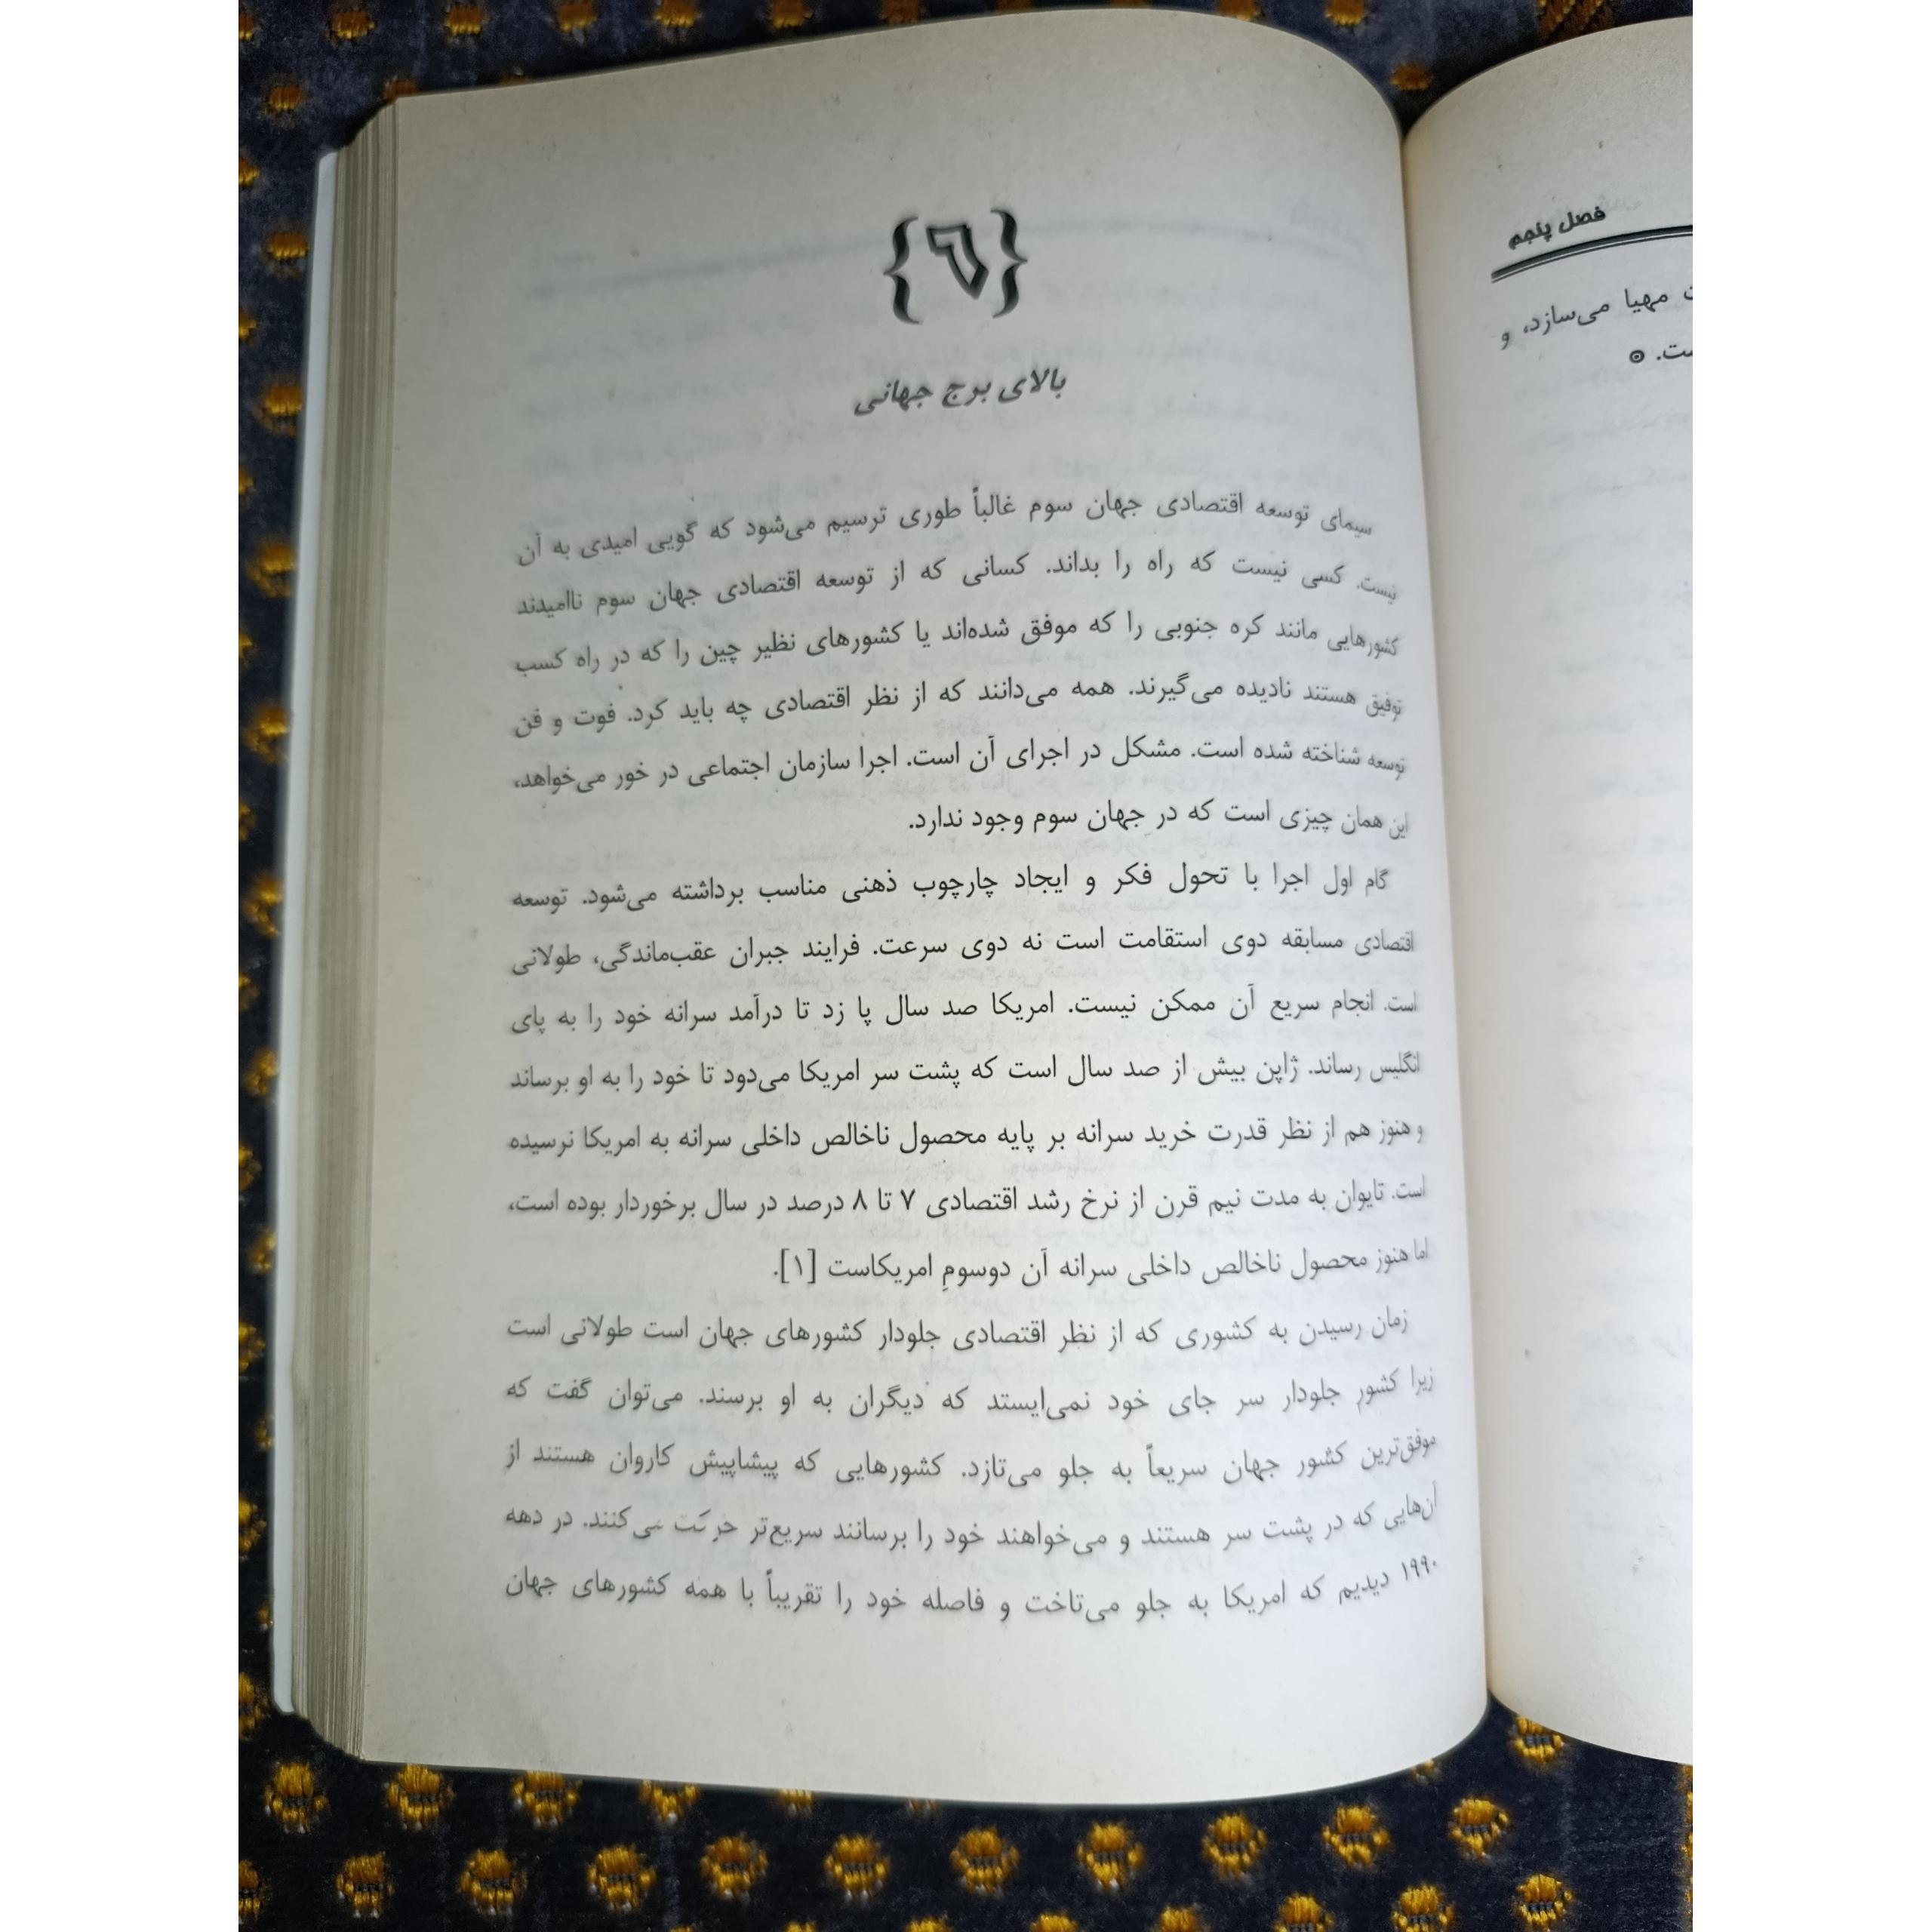 فصل پنجم
مهیا می‌سازد، و
ست.
{۶}
بالای برج جهانی
سیمای توسعه اقتصادی جهان سوم غالباً طوری ترسیم می‌شود که گویی امیدی به آن
نیست. کسی نیست که راه را بداند. کسانی که از توسعه اقتصادی جهان سوم ناامیدند
کشورهایی مانند کره جنوبی را که موفق شده‌اند یا کشورهای نظیر چین را که در راه کسب
توفیق هستند نادیده می‌گیرند. همه می‌دانند که از نظر اقتصادی چه باید کرد. فوت و فن
توسعه شناخته شده است. مشکل در اجرای آن است. اجرا سازمان اجتماعی در خور می‌خواهد،
این همان چیزی است که در جهان سوم وجود ندارد.
گام اول اجرا با تحول فکر و ایجاد چارچوب ذهنی مناسب برداشته می‌شود. توسعه
اقتصادی مسابقه دوی استقامت است نه دوی سرعت. فرایند جبران عقب‌ماندگی، طولانی
است. انجام سریع آن ممکن نیست. امریکا صد سال پا زد تا درآمد سرانه خود را به پای
انگلیس رساند. ژاپن بیش از صد سال است که پشت سر امریکا می‌دود تا خود را به او برساند
و هنوز هم از نظر قدرت خرید سرانه بر پایه محصول ناخالص داخلی سرانه به امریکا نرسیده
است. تایوان به مدت نیم قرن از نرخ رشد اقتصادی ۷ تا ۸ درصد در سال برخوردار بوده است،
اما هنوز محصول ناخالص داخلی سرانه آن دوسومِ امریکاست [۱].
زمان رسیدن به کشوری که از نظر اقتصادی جلودار کشورهای جهان است طولانی است
زیرا کشور جلودار سر جای خود نمی‌ایستد که دیگران به او برسند. می‌توان گفت که
موفق‌ترین کشور جهان سریعاً به جلو می‌تازد. کشورهایی که پیشاپیش کاروان هستند از
آن‌هایی که در پشت سر هستند و می‌خواهند خود را برسانند سریع‌تر حرکت می‌کنند. در دهه
۱۹۹۰ دیدیم که امریکا به جلو می‌تاخت و فاصله خود را تقریباً با همه کشورهای جهان